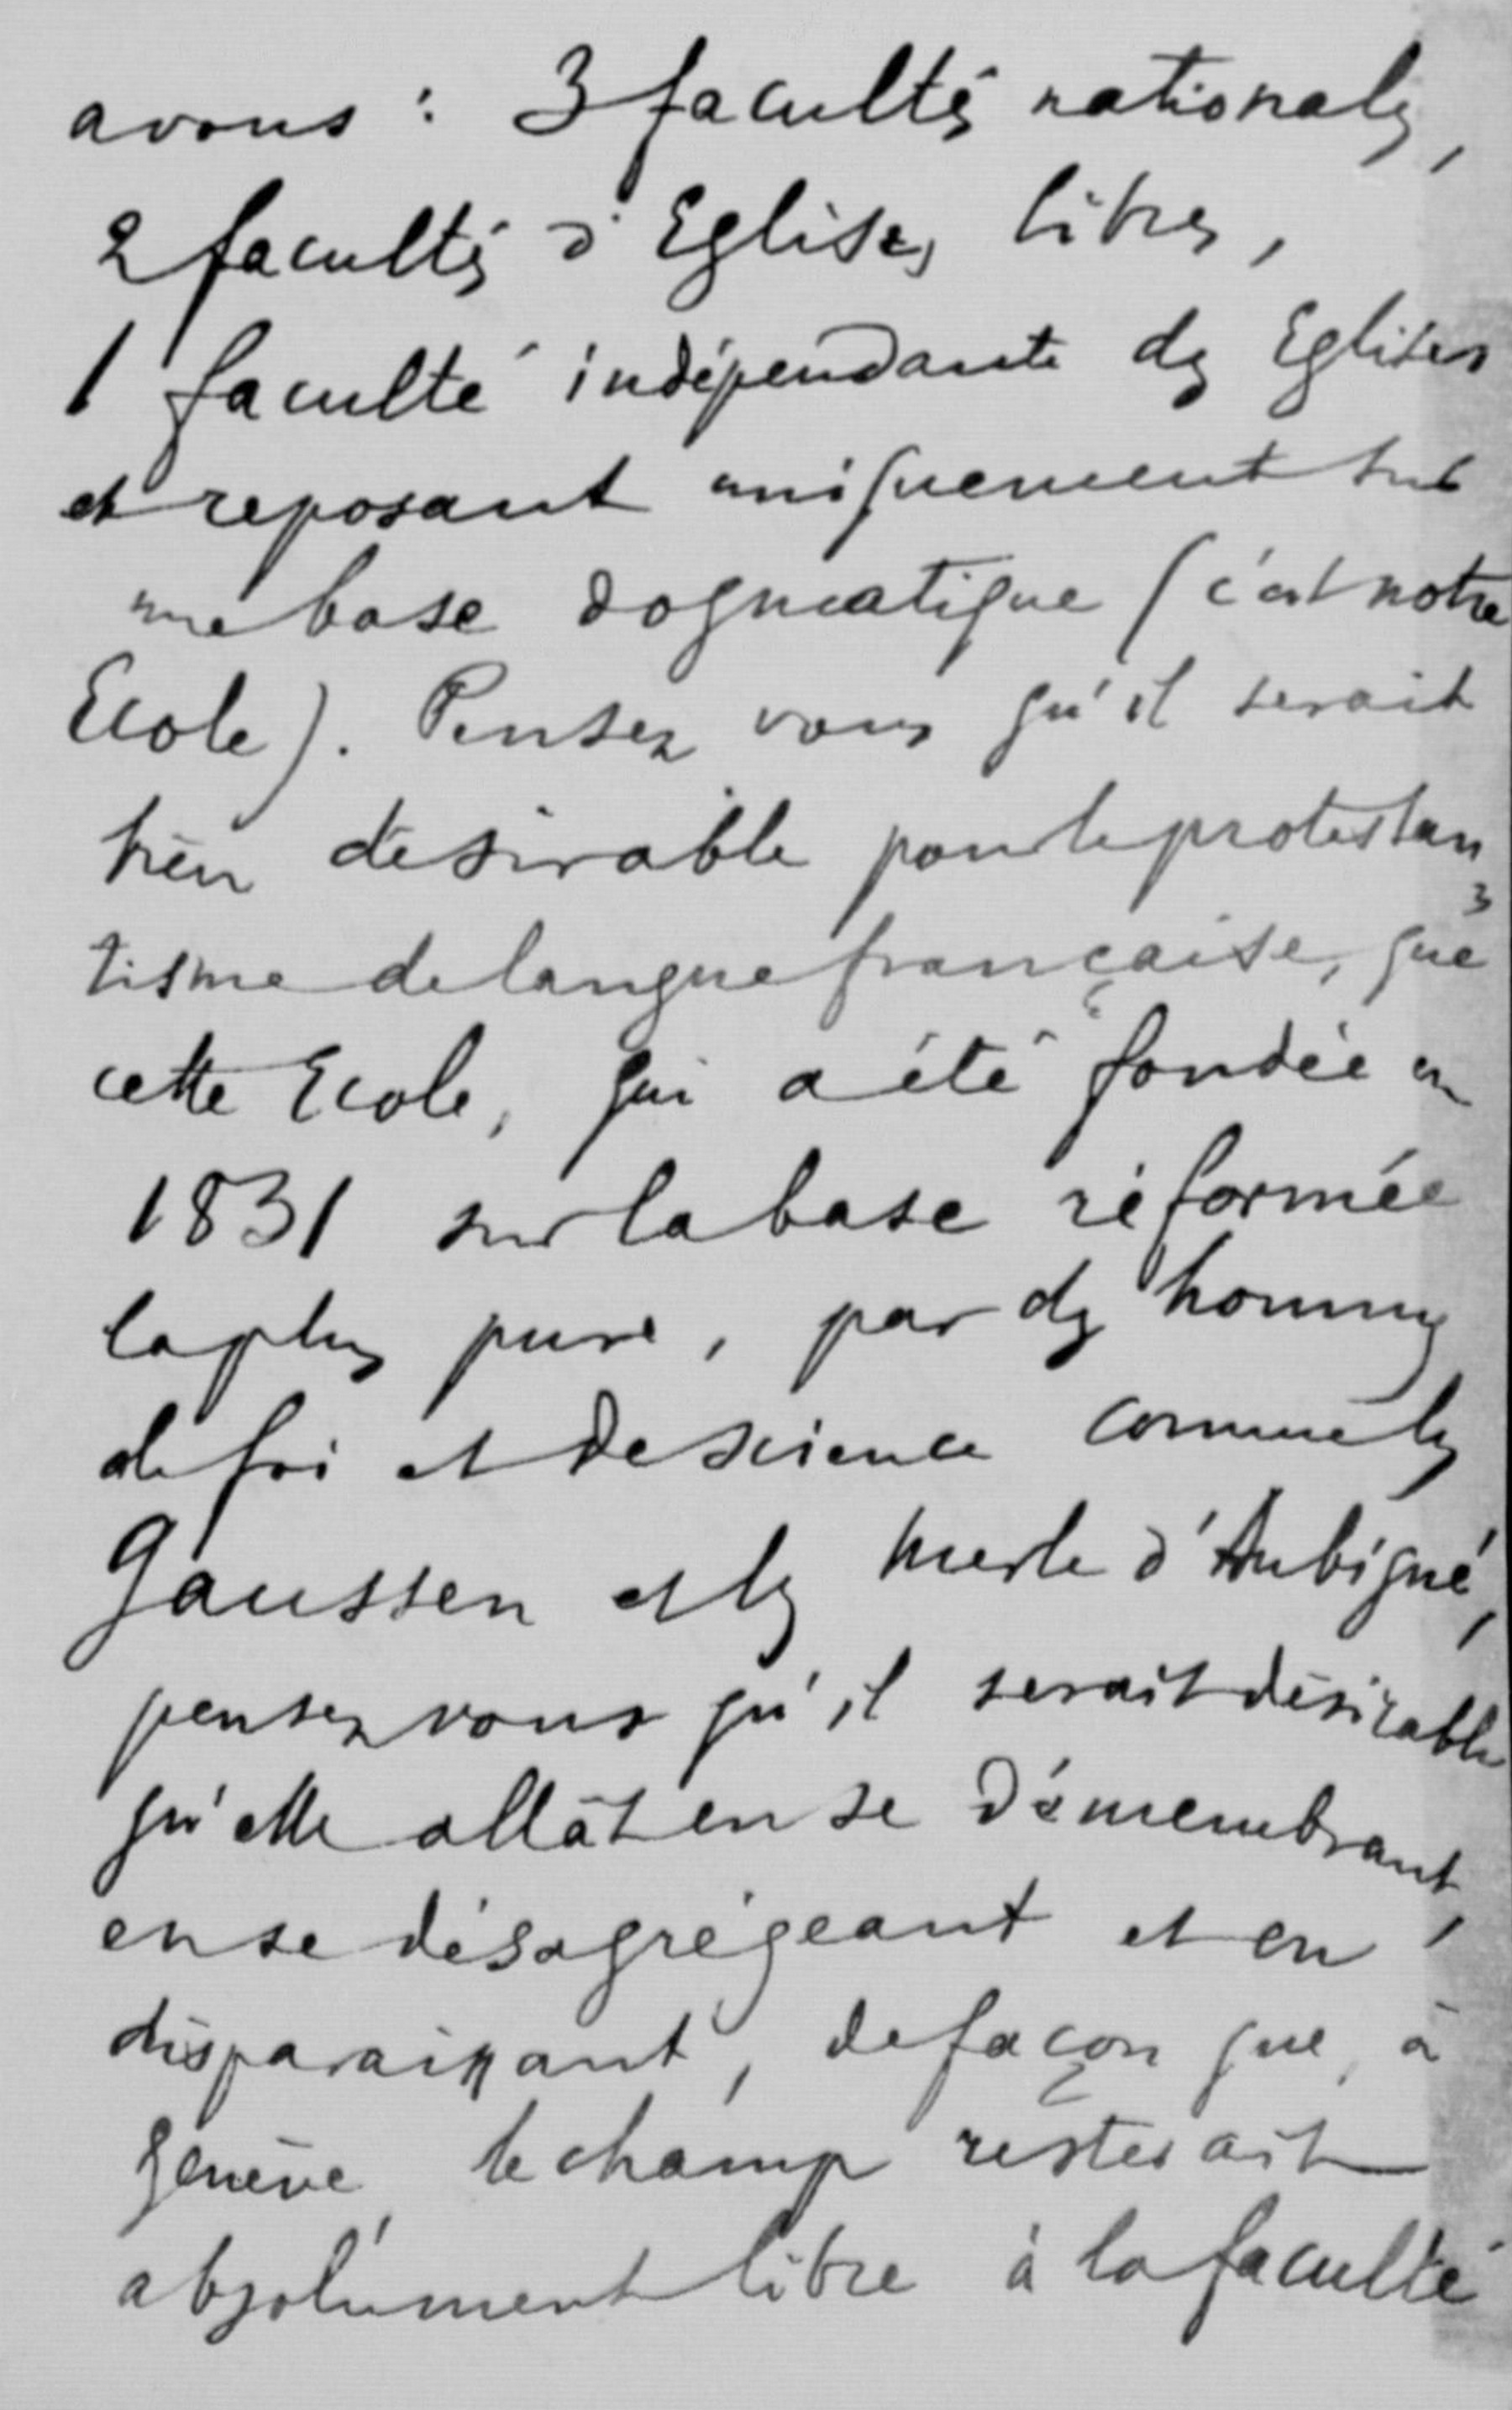 avons : 3 facultés nationales,
2 facultés d'Eglises libres,
1 faculté indépendante des Eglises
et reposant uniquement sur
une base dogmatique (c'est notre
Ecole). Pensez vous qu'il serait
bien désirable pour le protestan
tisme de langue française, que
cette Ecole, qui a été fondée en
1831 sur la base réformée
la plus pure, par des hommes
de foi et de science comme les
Gaussen et les Merle d'Aubigné,
pensez vous qu'il serait désirable
qu'elle allât en se démembrant,
en se désagrégeant et en
disparaissant, de façon que, à
Genève, le champ resterait
absolument libre à la faculté